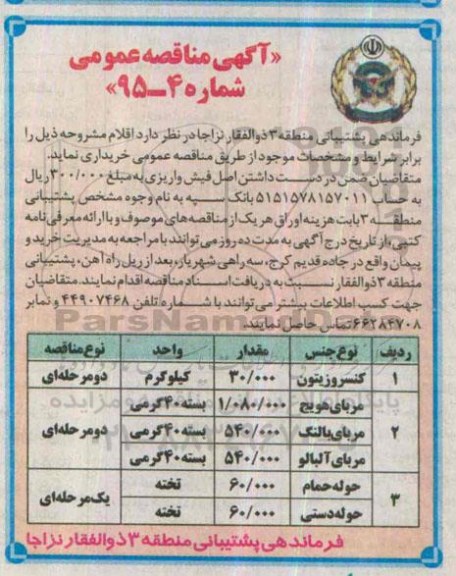 «آگهی مناقصه عمومی
شماره ۴-۹۵»
فرماندهی پشتیبانی منطقه ۳ ذوالفقار نزاجا در نظر دارد اقلام مشروحه ذیل را
برابر شرایط و مشخصات موجود از طریق مناقصه عمومی خریداری نماید.
متقاضیان ضمن در دست داشتن اصل فیش واریزی به مبلغ ۳۰۰/۰۰۰ ریال
به حساب ۵۱۵۱۵۷۸۱۵۷۰۱۱ بانک سپه به نام وجوه مشخص پشتیبانی
منطقه ۳ بابت هزینه اوراق هر یک از مناقصه های موصوف و با ارائه معرفی نامه
کتبی، از تاریخ درج آگهی به مدت ده روز می توانند با مراجعه به مدیریت خرید و
پیمان واقع در جاده قدیم کرج، سه راهی شهریار، بعد از ریل راه آهن، پشتیبانی
منطقه ۳ ذوالفقار نسبت به دریافت اسناد مناقصه اقدام نمایند. متقاضیان
جهت کسب اطلاعات بیشتر می توانند با شماره تلفن ۴۴۹۰۷۴۶۸ و نمابر
۶۶۲۸۴۷۰۸ تماس حاصل نمایند.
ParsNamadData
ردیف نوع جنس مقدار واحد نوع مناقصه
۱ کنسرو زیتون ۳۰/۰۰۰ کیلوگرم دو مرحله ای
مربای هویج ۱/۰۸۰/۰۰۰ بسته ۴۰ گرمی
۲ مربای بالنگ ۵۴۰/۰۰۰ بسته ۴۰ گرمی دو مرحله ای
مربای آلبالو ۵۴۰/۰۰۰ بسته ۴۰ گرمی
۳ حوله حمام ۶۰/۰۰۰ تخته یک مرحله ای
حوله دستی ۶۰/۰۰۰ تخته
فرماندهی پشتیبانی منطقه ۳ ذوالفقار نزاجا